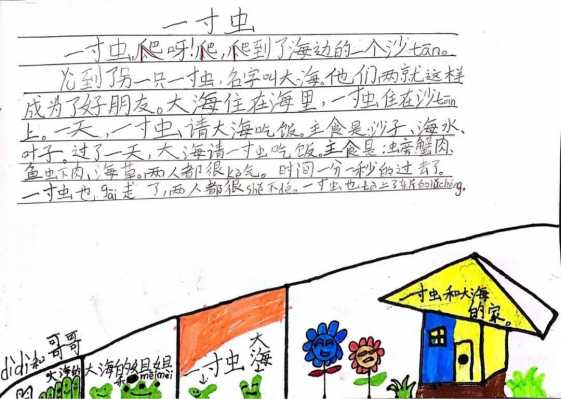 一寸虫
一寸虫,爬呀!爬,爬到了海边的一个沙tān。
到了另一只一寸虫,名字叫大海。他们两就这样
成为了好朋友。大海住在海里,一寸虫住在沙tān
上。一天,一寸虫请大海吃饭。主食是沙子、海水、
叶子。过了一天,大海请一寸虫吃饭。主食是 蟹肉、
鱼虫下肉、海草。两人都很kè气。时间一分一秒的过去了。
一寸虫也gāi走了,两人都很shě不得。一寸虫也
一寸虫和大海
的家。
大海
一寸虫
didi和哥哥
大海的
大海的姐姐
和meimei